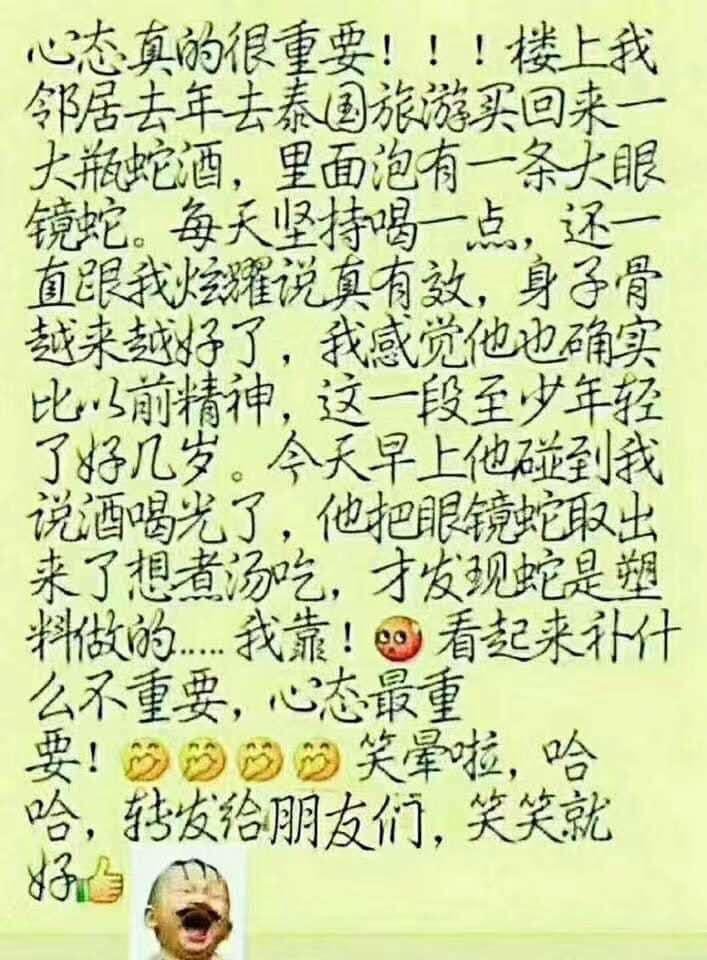 心态真的很重要！！！楼上我
邻居去年去泰国旅游买回来一
大瓶蛇酒，里面泡有一条大眼
镜蛇。每天坚持喝一点，还一
直跟我炫耀说真有效，身子骨
越来越好了，我感觉他也确实
比以前精神，这一段至少年轻
了好几岁。今天早上他碰到我
说酒喝光了，他把眼镜蛇取出
来了想煮汤吃，才发现蛇是塑
料做的.....我靠！看起来补什
么不重要，心态最重
要！笑晕啦，哈
哈，转发给朋友们，笑笑就
好